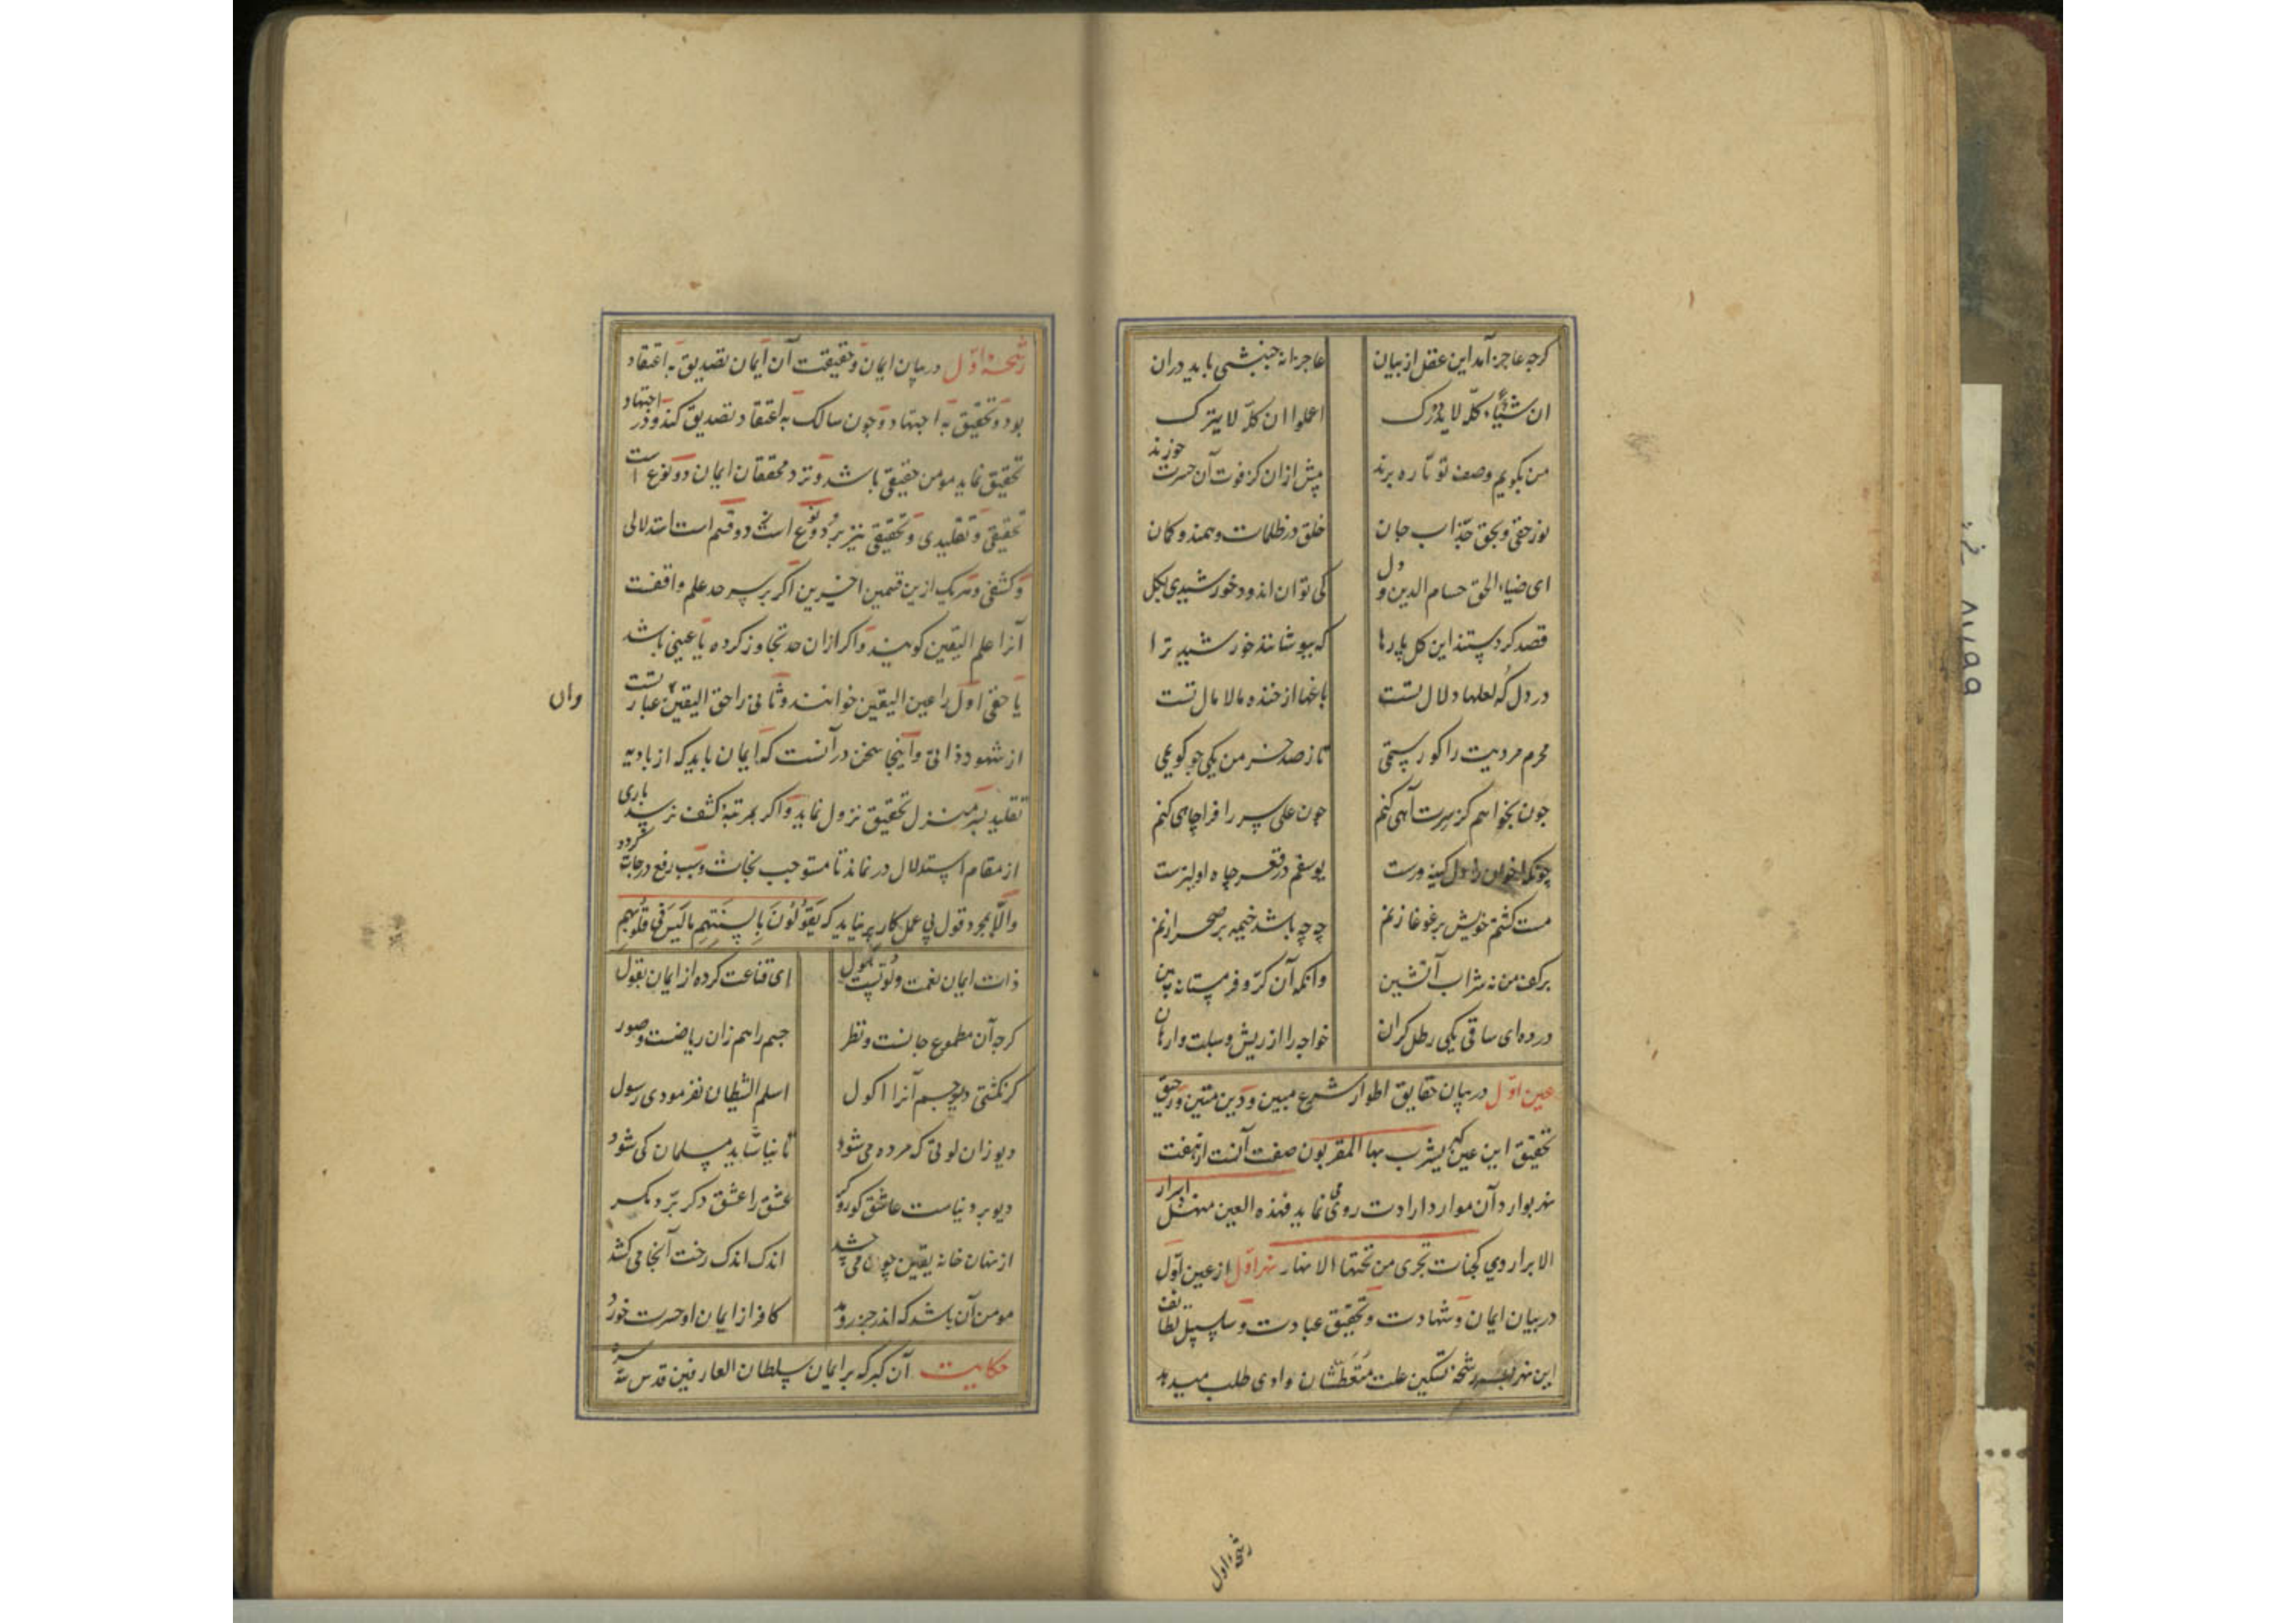 کرچه عاجز آمد این عقل از بیان عاجزانه جنبشی باید دران
ان شیئا کلّه لا یدرک اعلموا ان کلّه لا یترک
من بکویم وصف تو تا ره برند پیش ازان کز فوت آن حسرت خورند
نور حقی و بحق جذّاب جان خلق در ظلمات وهمند و کمان
ای ضیاء الحق حسام الدین و دل کی توان اندود خورشیدی بکل
قصد کردستند این کل پارها که بپوشانند خورشید ترا
در دل که لعلها دلال تست باغها از خنده مالامال تست
محرم مردیت را کو رستمی تا ز صد خرمن یکی جو کویمی
چون بخواهم کز سرت آهی کنم چون علی سر را فرا چاهی کنم
چونکه اخوان را دل کینه ورست یوسفم در قعر چاه اولیترست
مست کشتم خویش بر غوغا زنم چه چه باشد خیمه بر صحرا زنم
بر کف من نه شراب آتشین وانکه آن کرّ و فر مستانه بین
در ده ای ساقی یکی رطل کران خواجه را از ریش و سبلت وارهان
عین اوّل در بیان حقایق اطوار شرع مبین و دین متین و رحیق
تحقیق این عین که یشرب بها المقربون صفت آنست از هفت
نهر بوارد آن موارد ارادت روی می نماید فهذه العین منهل ابرار
الابرار وهی کجنات تجری من تحتها الانهار نهر اوّل از عین اوّل
در بیان ایمان و شهادت و تحقیق عبادت و سلسبیل لطائف
این نهر رشحه تسکین علت متعطشان وادی طلب میدهد
رشحه اول
رشحه اوّل در بیان ایمان و حقیقت آن ایمان تصدیق به اعتقاد
بود و تحقیق به اجتهاد و چون سالک به اعتقاد تصدیق کند و در اجتهاد
تحقیق نماید مومن حقیقی باشد و نزد محققان ایمان دو نوع است
تحقیقی و تقلیدی و تحقیقی نیز بر دو نوع است دو قسم است استدلالی
و کشفی و هریک ازین قسمین اخیرین اکر بر سر حد علم واقفست
آنرا علم الیقین کویند و اکر ازان حد تجاوز کرده یا عینی باشد
یا حقی اول را عین الیقین خوانند و ثانی را حق الیقین عبارتست
وان
از شهود ذاتی و اینجا سخن در آنست که ایمان باید که از بادیه
تقلید بسر منزل تحقیق نزول نماید و اکر بمرتبه کشف نرسد باری
از مقام استدلال در نماند تا مستوجب نجات و سبب رفع درجات کردد
والّا بمجرد قول بی عمل کار بر نیاید که یَقُولُونَ بِالسِنَتِهِم مالَیسَ فی قلُوبِهِم
ذات ایمان نعمت و لوتیست هول ای قناعت کرده از ایمان بقول
کرچه آن مطعوم جانست و نظر جسم را هم زان ریاضت و صور
کر نکشتی دیو جسم آنرا اکول اسلم الشیطان نفرمودی رسول
دیو زان لوتی که مرده می شود تا نیاشاید مسلمان کی شود
دیو بر دنیاست عاشق کور و کر عشق را عشق دکر برّد مکر
از نهان خانه یقین چون می چشد اندک اندک رخت آنجا می کشد
مومن آن باشد که اندر جزر و مد کافر از ایمان او حسرت خورد
حکایت آن کبر که بر ایمان سلطان العارفین قدس سره